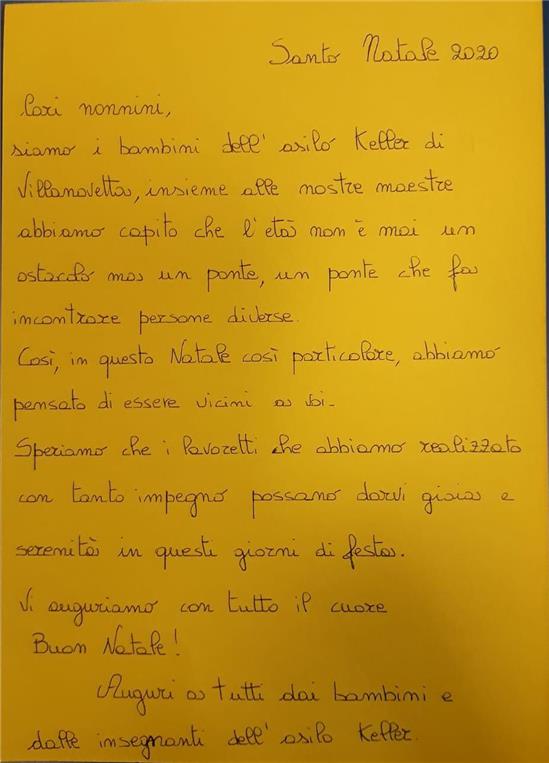 Santo Natale 2020
Cari nonnini,
siamo i bambini dell'asilo Keller di
Villanovetta, insieme alle nostre maestre
abbiamo capito che l'età non è mai un
ostacolo ma un ponte, un ponte che fa
incontrare persone diverse.
Così, in questo Natale così particolare, abbiamo
pensato di essere vicini a voi.
Speriamo che i lavoretti che abbiamo realizzato
con tanto impegno possano darvi gioia e
serenità in questi giorni di festa.
Vi auguriamo con tutto il cuore
Buon Natale!
Auguri a tutti dai bambini e
dalle insegnanti dell'asilo Keller.